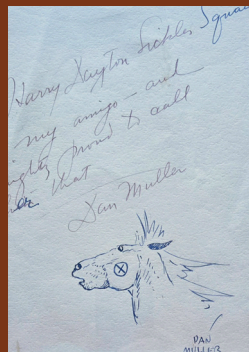 Harry Dayton Sickles
my amigo – and
proud to call
that
Dan Muller
DAN
MULLER